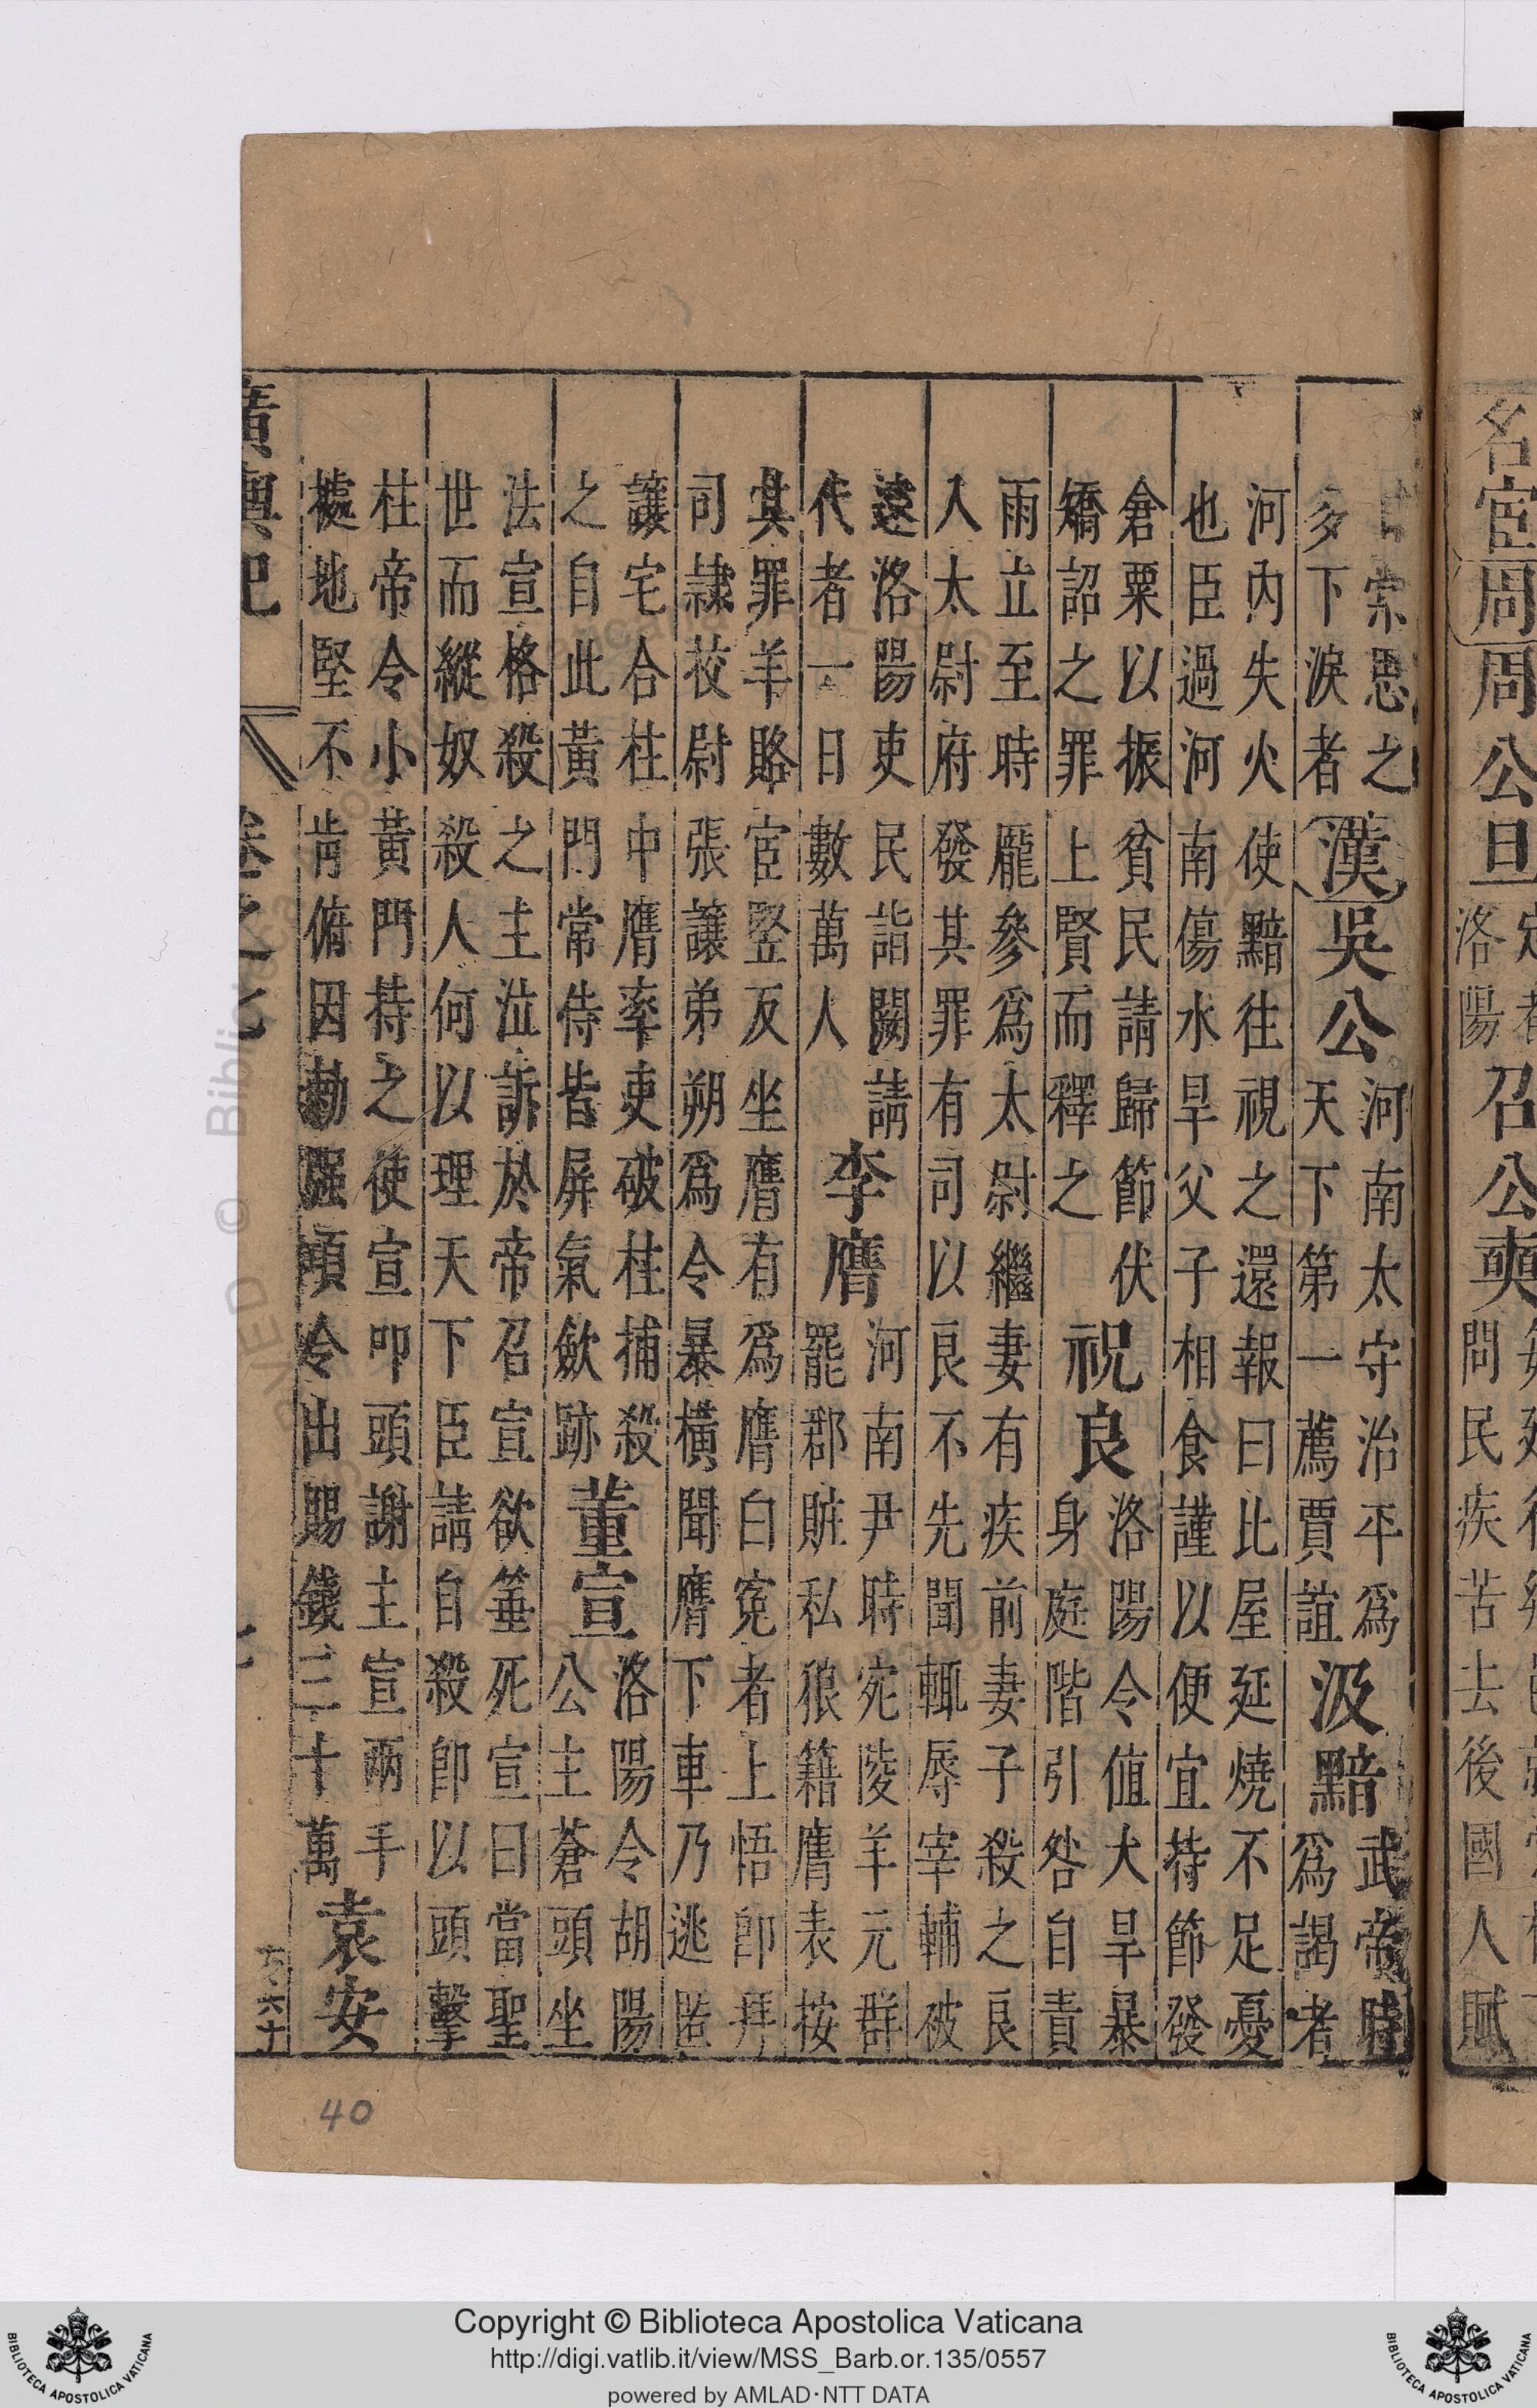 名宦周周公旦
洛陽
召公奭
問民疾苦去後國人賦
思之
多下淚者
漢吳公
河南太守治平爲
天下第一薦賈誼
汲黯
武帝時
爲謁者
河內失火使黯往視之還報曰比屋延燒不足憂
也臣過河南傷水旱父子相食謹以便宜持節發
倉粟以振貧民請歸節伏
矯詔之罪上賢而釋之
祝良
洛陽令値大旱暴
身庭階引咎自責
雨立至時龎參爲太尉繼妻有疾前妻子殺之良
入太尉府發其罪有司以良不先聞輒辱宰輔被
逮洛陽吏民詣闕請
代者一日數萬人
李膺
河南尹時宛陵羊元群
罷郡賍私狼籍膺表按
其罪羊賂宦竪反坐膺有爲膺白寃者上悟卽拜
司隸校尉張讓弟朔爲令暴橫聞膺下車乃逃匿
讓宅合柱中膺率吏破柱捕殺
之自此黃門常侍皆屏氣歛跡
董宣
洛陽令胡陽
公主蒼頭坐
法宣格殺之主泣訴於帝召宣欲箠死宣曰當聖
世而縱奴殺人何以理天下臣請自殺卽以頭擊
柱帝令小黃門持之使宣叩頭謝主宣兩手
㨿地堅不肯俯因勅强項令出賜錢三十萬
袁安
廣輿記 卷之七
40
Copyright © Biblioteca Apostolica Vaticana
http://digi.vatlib.it/view/MSS_Barb.or.135/0557
powered by AMLAD·NTT DATA
BIBLIOTECA APOSTOLICA VATICANA
BIBLIOTECA APOSTOLICA VATICANA